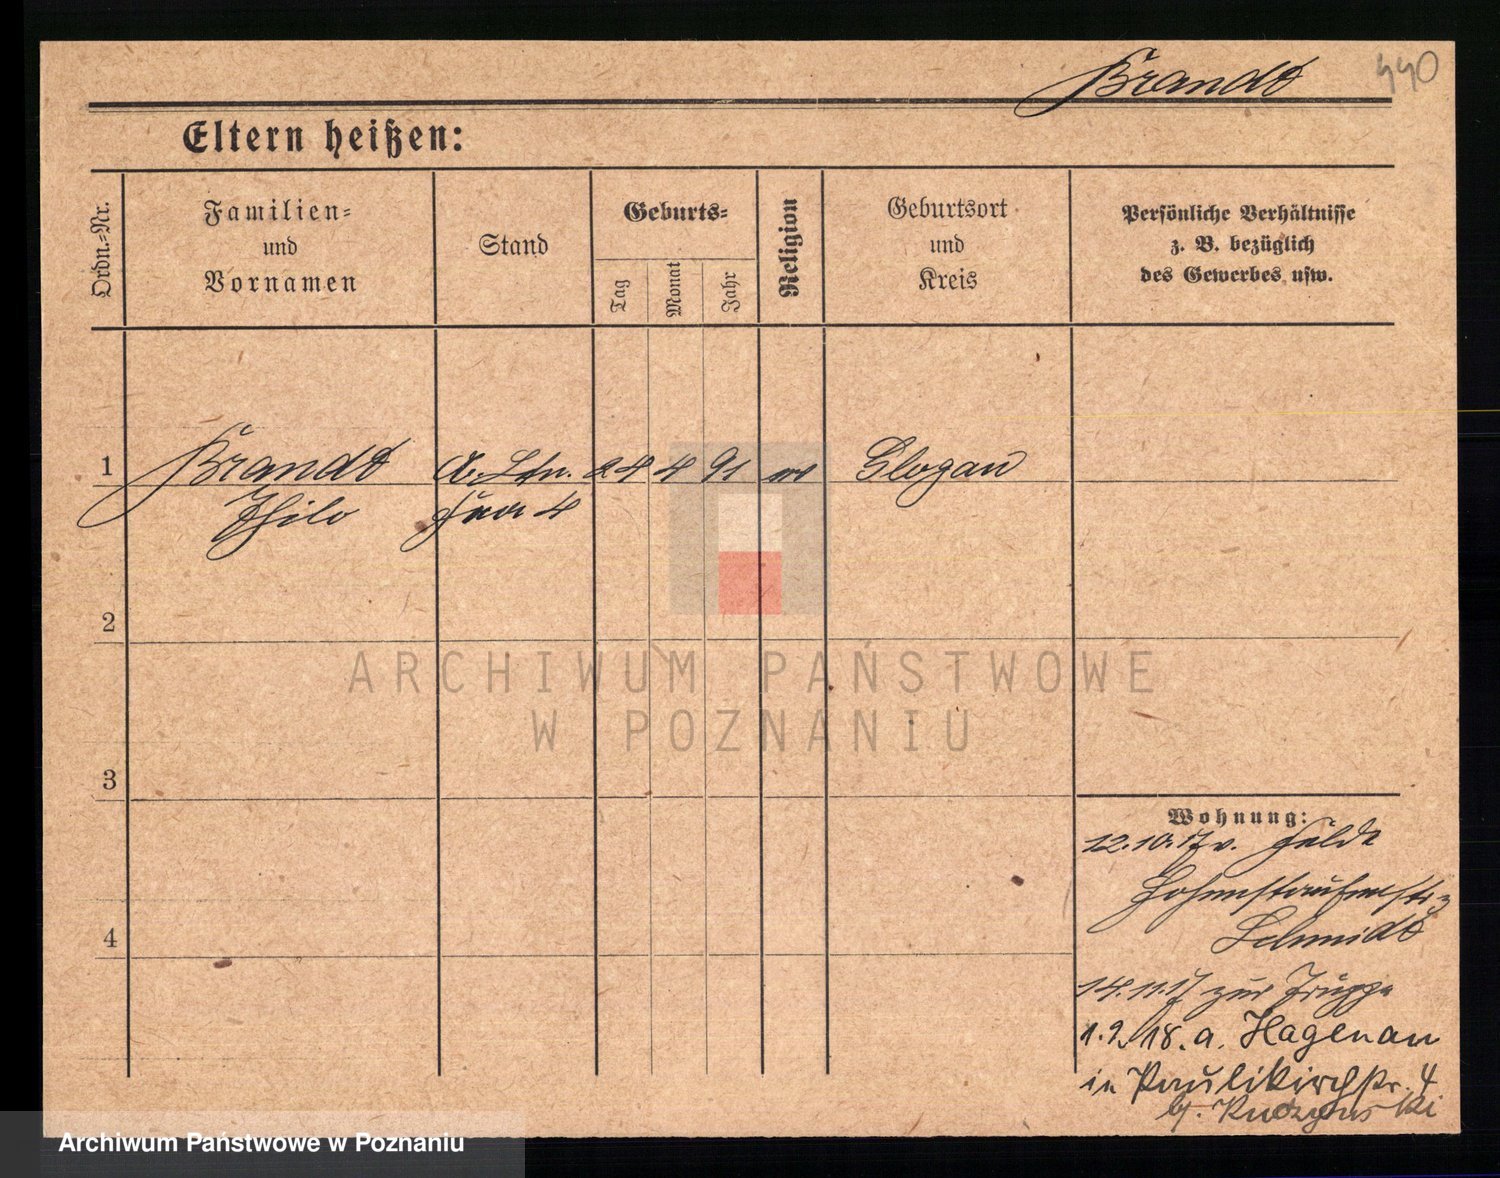 Brandt
440
Eltern heißen:
Ordn.-Nr.
Familien-
und
Vornamen
Stand
Geburts-
Tag
Monat
Jahr
Religion
Geburtsort
und
Kreis
Persönliche Verhältnisse
z. B. bezüglich
des Gewerbes usw.
1
Brandt
Thilo
24 4 91
ev
Glogau
2
3
4
Wohnung:
12.10.17 v. Felde
Hohenstaufenstr
Schmidt
14.11.17 zur Truppe
1.9.18. a. Hagenau
in Paulikirchstr. 4
ARCHIWUM PAŃSTWOWE
W POZNANIU
Archiwum Państwowe w Poznaniu